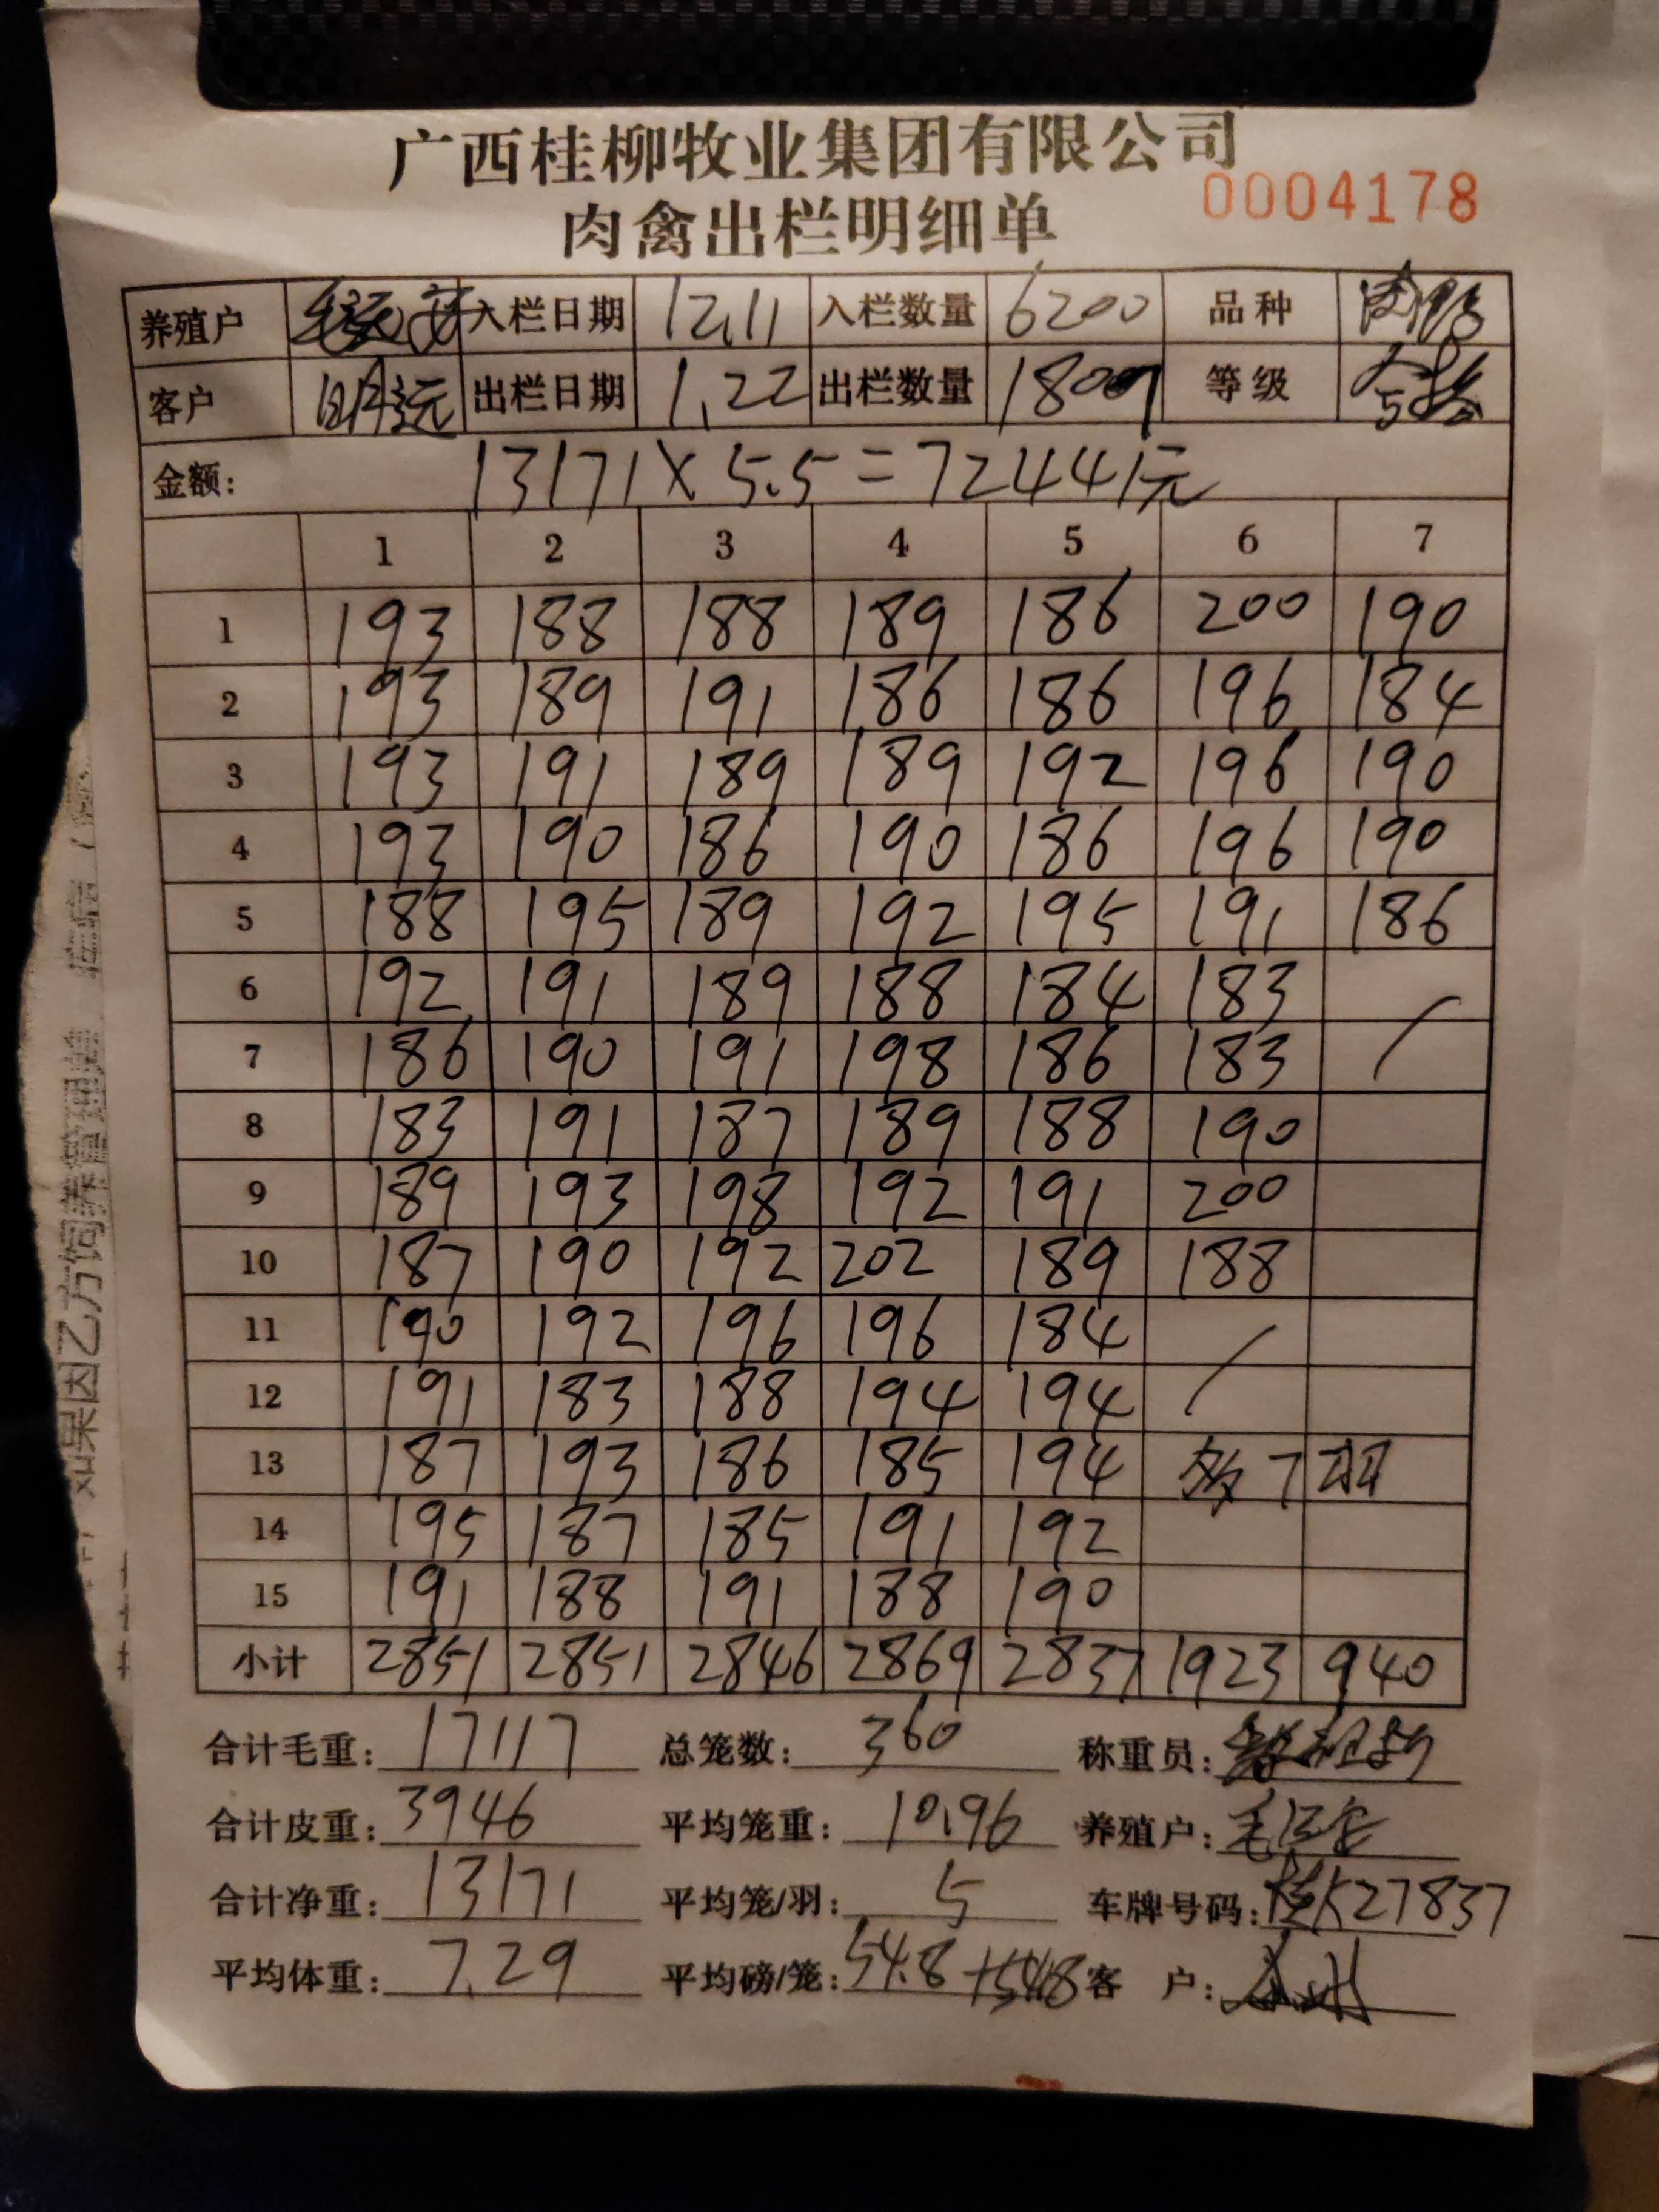 广西桂柳牧业集团有限公司
0004178
肉禽出栏明细单
养殖户 入栏日期 12.11 入栏数量 6200 品种 肉鸭
客户 出栏日期 1.22 出栏数量 1807 等级
金额: 13171×5.5=72441元
1 2 3 4 5 6 7
1 193 188 188 189 186 200 190
2 193 189 191 186 186 196 184
3 193 191 189 189 192 196 190
4 193 190 186 190 186 196 190
5 188 195 189 192 195 191 186
6 192 191 189 188 184 183
7 186 190 191 198 186 183
8 183 191 187 189 188 190
9 189 193 198 192 191 200
10 187 190 192 202 189 188
11 190 192 196 196 184
12 191 183 188 194 194
13 187 193 186 185 194 多7羽
14 195 187 185 191 192
15 191 188 191 188 190
小计 2851 2851 2846 2869 2837 1923 940
合计毛重: 17117 总笼数: 360 称重员:
合计皮重: 3946 平均笼重: 10.96 养殖户:
合计净重: 13171 平均笼/羽: 5 车牌号码: 27837
平均体重: 7.29 平均磅/笼: 54.8 客 户:
如果因乙方饲养管理